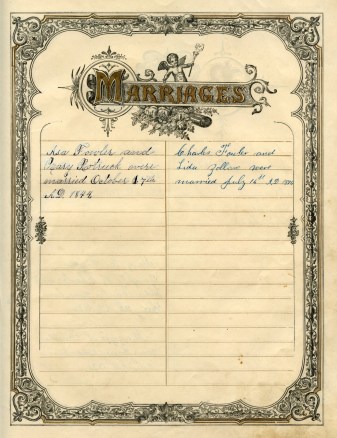 MARRIAGES
Asa Fowler and
Mary were
married October 17th
A.D. 1899
Charles Fowler and
Lida were
married July 16th A.D.